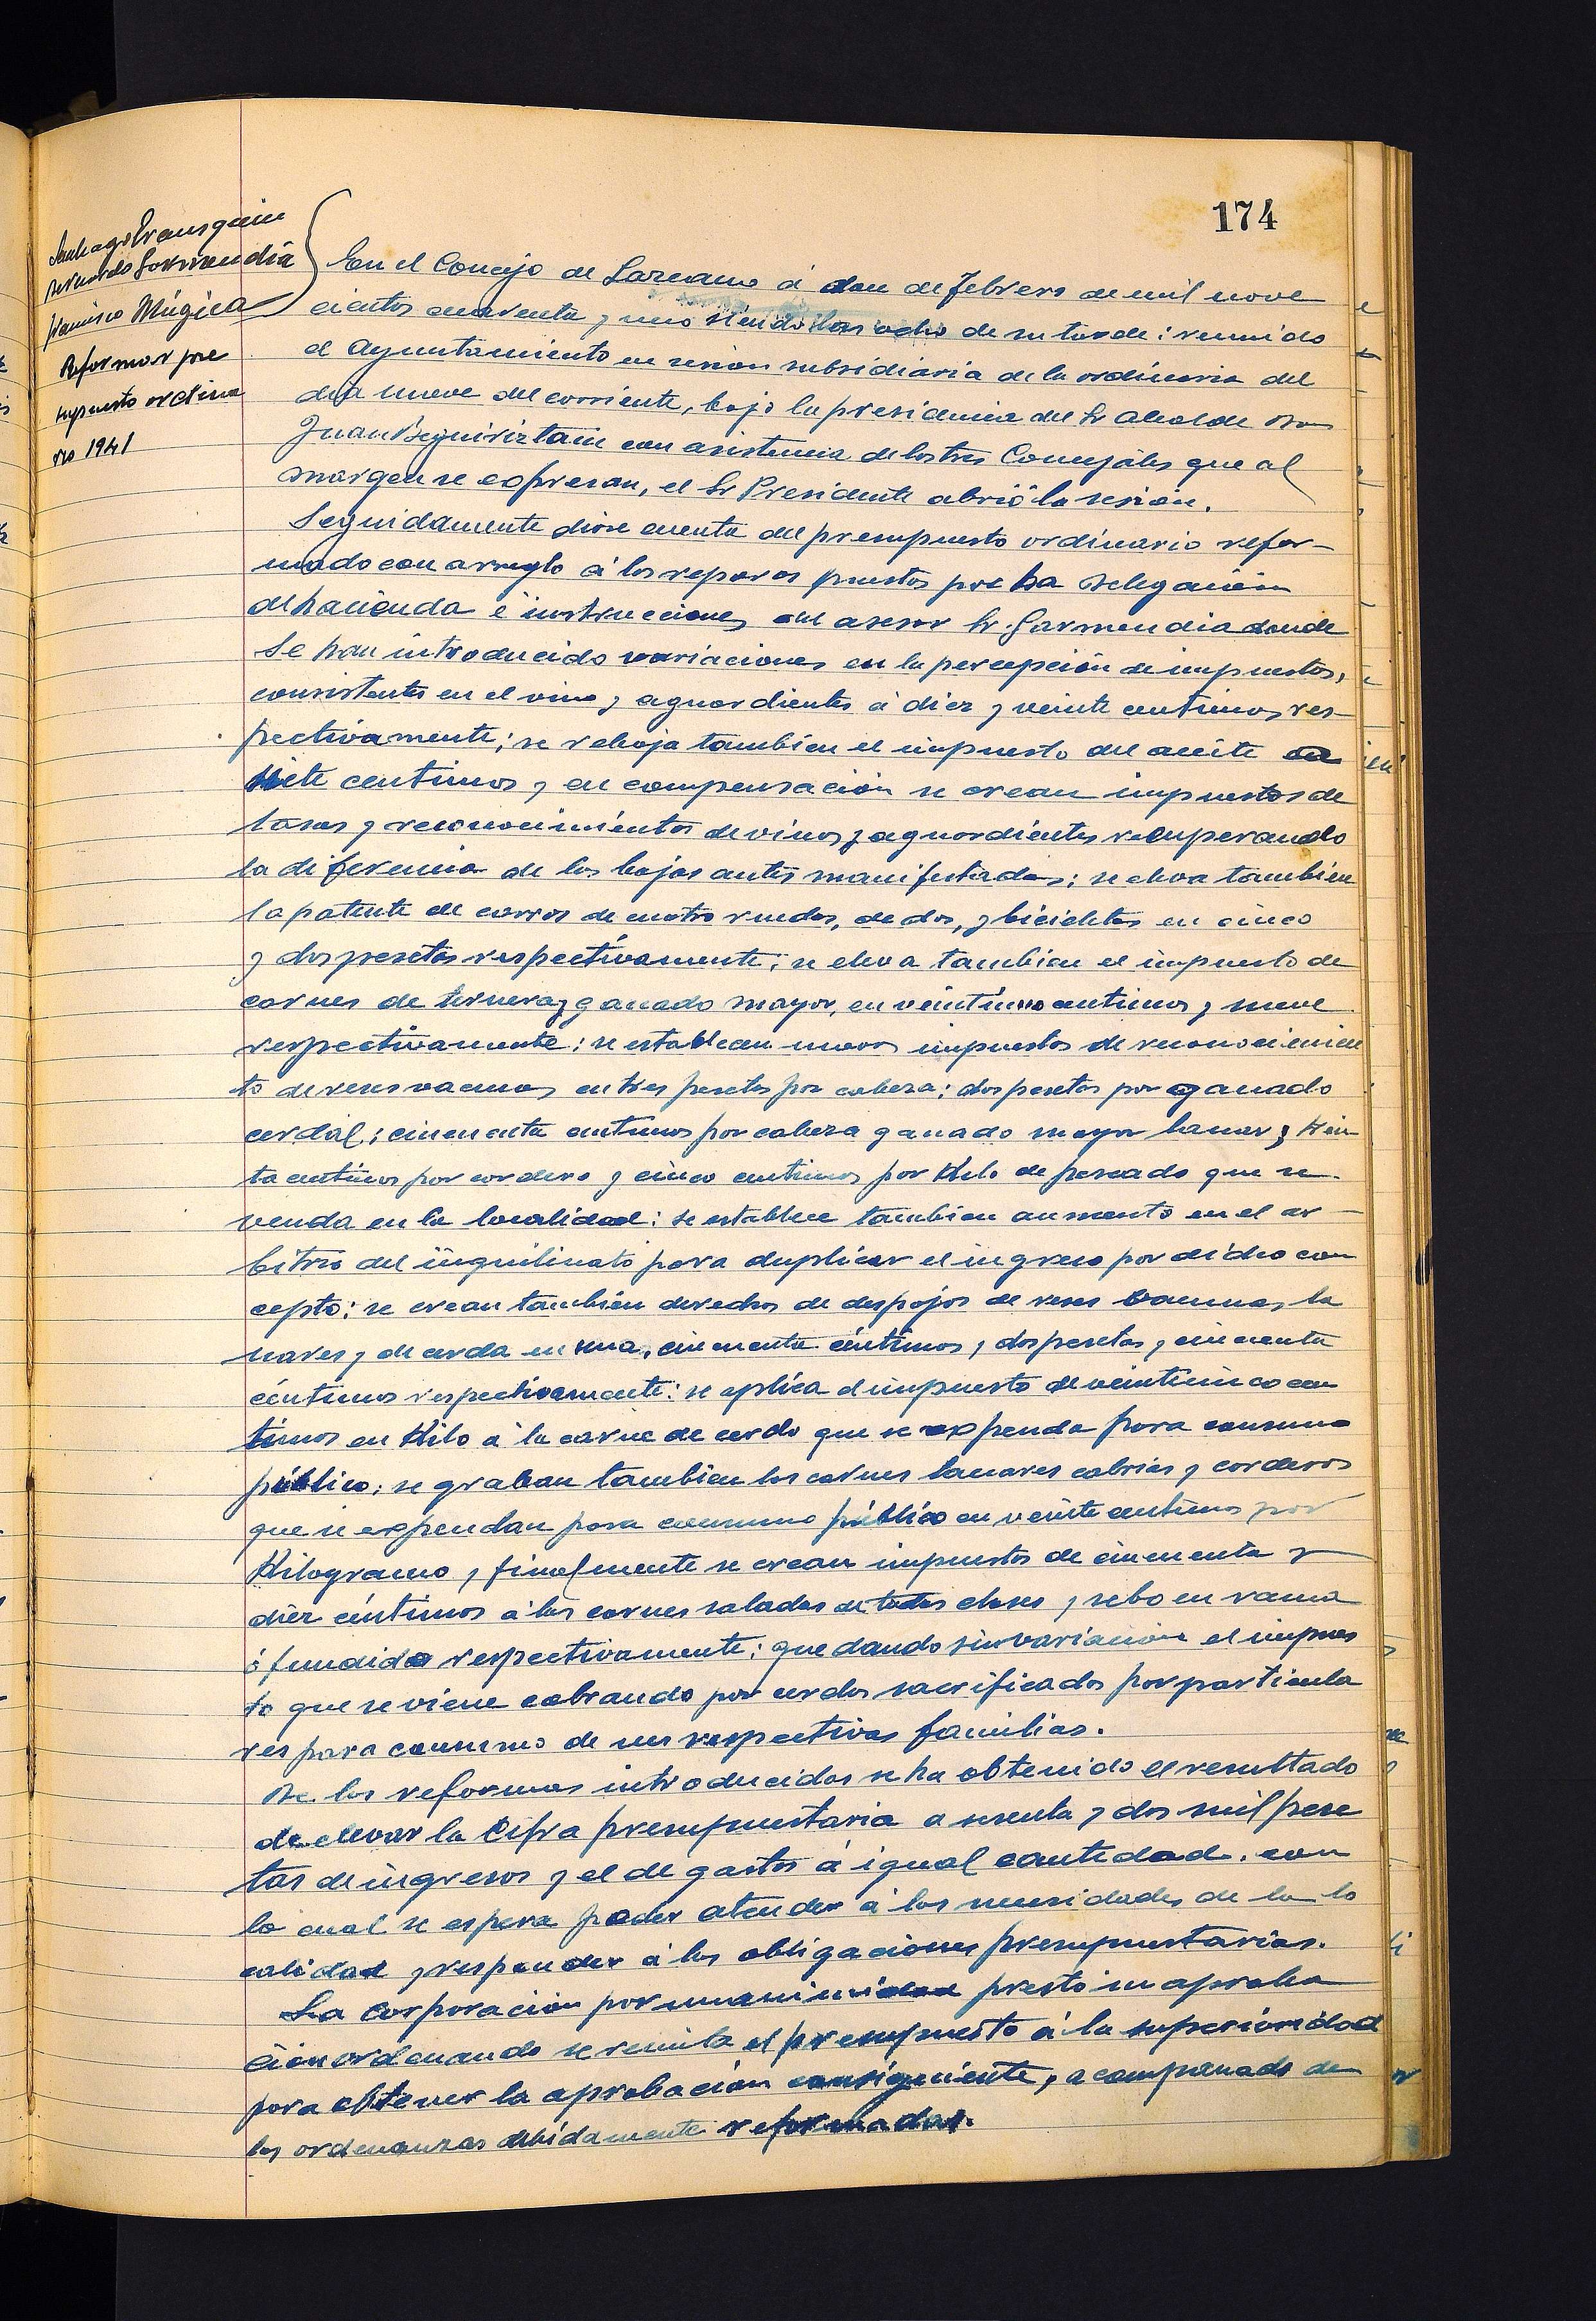 174
Santiago Iransquin
Bernardo Gorrmendia
Francisco Múgica
Reformar pre
supuesto ordina
rio 1941
En el Concejo de Lazcano á doce de Febrero de mil nove
cientos cuarenta y uno siendo las ocho de su tarde: reunido
el Ayuntamiento en sesion subsidiaria de la ordinaria del
dia nueve del corriente, bajo la presidencia del Sr Alcalde Don
Juan Beguiriztain con asistencia de los tres Concejáles que al
margen se expresan, el Sr Presidente abrió la sesión.
Seguidamente dióse cuenta del presupuesto ordinario refor-
mado con arreglo á los reparos puestos por la Delegación
de hacienda é instrucciones del asesor Sr. Garmendia donde
se han introducido variaciones en la percepción de impuestos,
consistentes en el vino y aguardientes á diez y veinte centimos res-
pectivamente; se rebaja tambien el impuesto del aceite en
siete centimos y en compensación se crean impuestos de
tasas y reconocimientos de vinos y aguardientes recuperando
la diferencia de las bajas antes manifestadas; se eleva también
la patente de carros de cuatro ruedas, de dos, y bicicletas en cinco
y dos pesetas respectivamente; se eleva tambien el impuesto de
carnes de ternera y ganado mayor, en veintiuno centimos y nueve
respectivamente; se establecen nuevos impuestos de reconocimien
to de reses vacunas en tres pesetas por cabeza; dos pesetas por ganado
cerdal; cincuenta centimos por cabeza ganado mayor lanar y trein
ta centimos por cordero y cinco centimos por kilo de pescado que se
venda en la localidad: se establece tambien aumento en el ar-
bitrio del inquilinato para duplicar el ingreso por dicho con
cepto; se crean también derechos de despojos de reses vacunas, la
nares y de cerda en una, cincuenta céntimos y dos pesetas y cincuenta
céntimos respectivamente: se aplica el impuesto de veinticinco cen
timos en kilo á la carne de cerdo que se expenda para consumo
público; se graban tambien las carnes lanares cabrias y corderos
que se expendan para consumo público en veinte centimos por
Kilogramo y finalmente se crean impuestos de cincuenta y
diez céntimos á las carnes saladas de todas clases y sebo en rama
ó fundido respectivamente; quedando sin variación el impues
to que se viene cobrando por cerdos sacrificados por particula
res para consumo de sus respectivas familias.
De las reformas introducidas se ha obtenido el resultado
de elevar la cifra presupuestaria a sesenta y dos mil pese
tas de ingresos y el de gastos á igual cantidad. con
lo cual se espera poder atender á las necesidades de la lo
calidad y responder á las obligaciones presupuestarias.
La corporación por unanimidad prestó su aproba
ción ordenando se remita el presupuesto á la superioridad
para obtener la aprobación consiguiente, acompañado de
las ordenanzas debidamente reformadas.